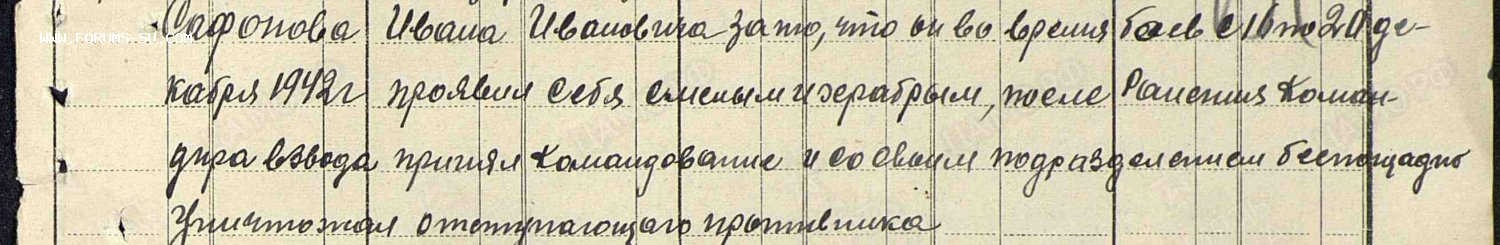 Сафонова Ивана Ивановича за то, что он во время боев с 16 по 20 де-
WWW.FORUMS-SU.COM
кабря 1942 г проявил себя смелым и храбрым, после Ранения Коман-
дира взвода принял командование и со своим подразделением беспощадно
Уничтожал отступающего противника